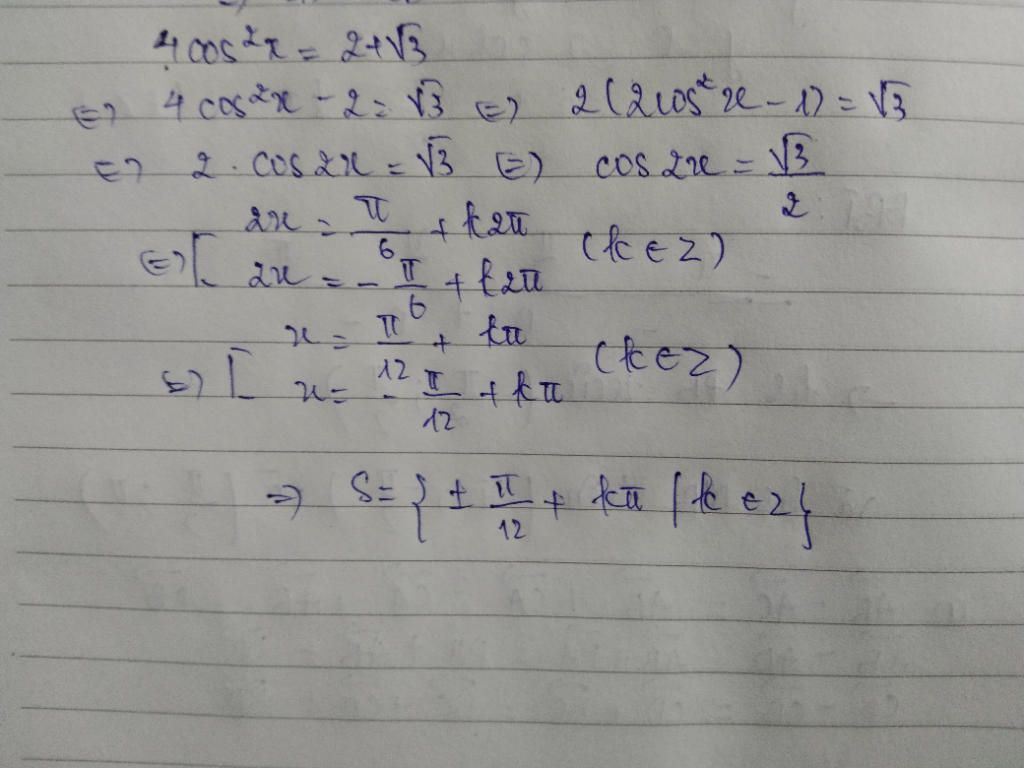 4cos²x = 2+√3
⇔ 4cos²x - 2 = √3 ⇔ 2(2cos²x - 1) = √3
⇔ 2.cos2x = √3 ⇔ cos2x = √3/2
⇔ [ 2x = π/6 + k2π
2x = -π/6 + k2π (k ∈ Z)
⇔ [ x = π/12 + kπ
x = -π/12 + kπ (k ∈ Z)
⇒ S = { ± π/12 + kπ | k ∈ Z }